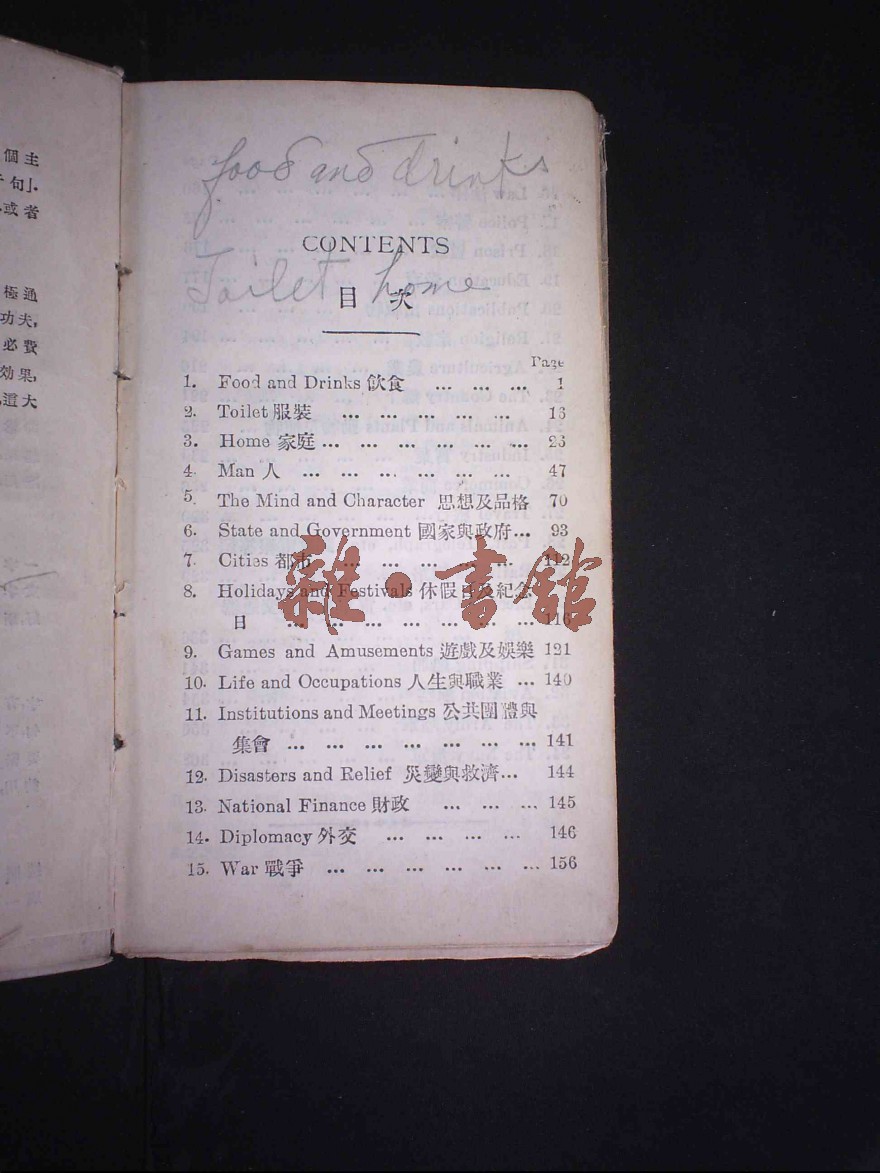 個主
句」.
或者
極通
功夫,
必費
效果,
這大
food and drinks
CONTENTS
Toilet home
目次
Page
1. Food and Drinks 飲食 ... ... ... 1
2. Toilet 服裝 ... ... ... ... ... 13
3. Home 家庭 ... ... ... ... ... ... 23
4. Man 人 ... ... ... ... ... ... 47
5. The Mind and Character 思想及品格 70
6. State and Government 國家與政府... 93
7. Cities 都市 ... ... ... ... ... 112
8. Holidays and Festivals 休假日及紀念
日 ... ... ... ... ... ... ... 116
9. Games and Amusements 遊戲及娛樂 121
10. Life and Occupations 人生與職業 ... 140
11. Institutions and Meetings 公共團體與
集會 ... ... ... ... ... ... ... 141
12. Disasters and Relief 災變與救濟... 144
13. National Finance 財政 ... ... ... 145
14. Diplomacy 外交 ... ... ... ... 146
15. War 戰爭 ... ... ... ... ... ... 156
雜·書館